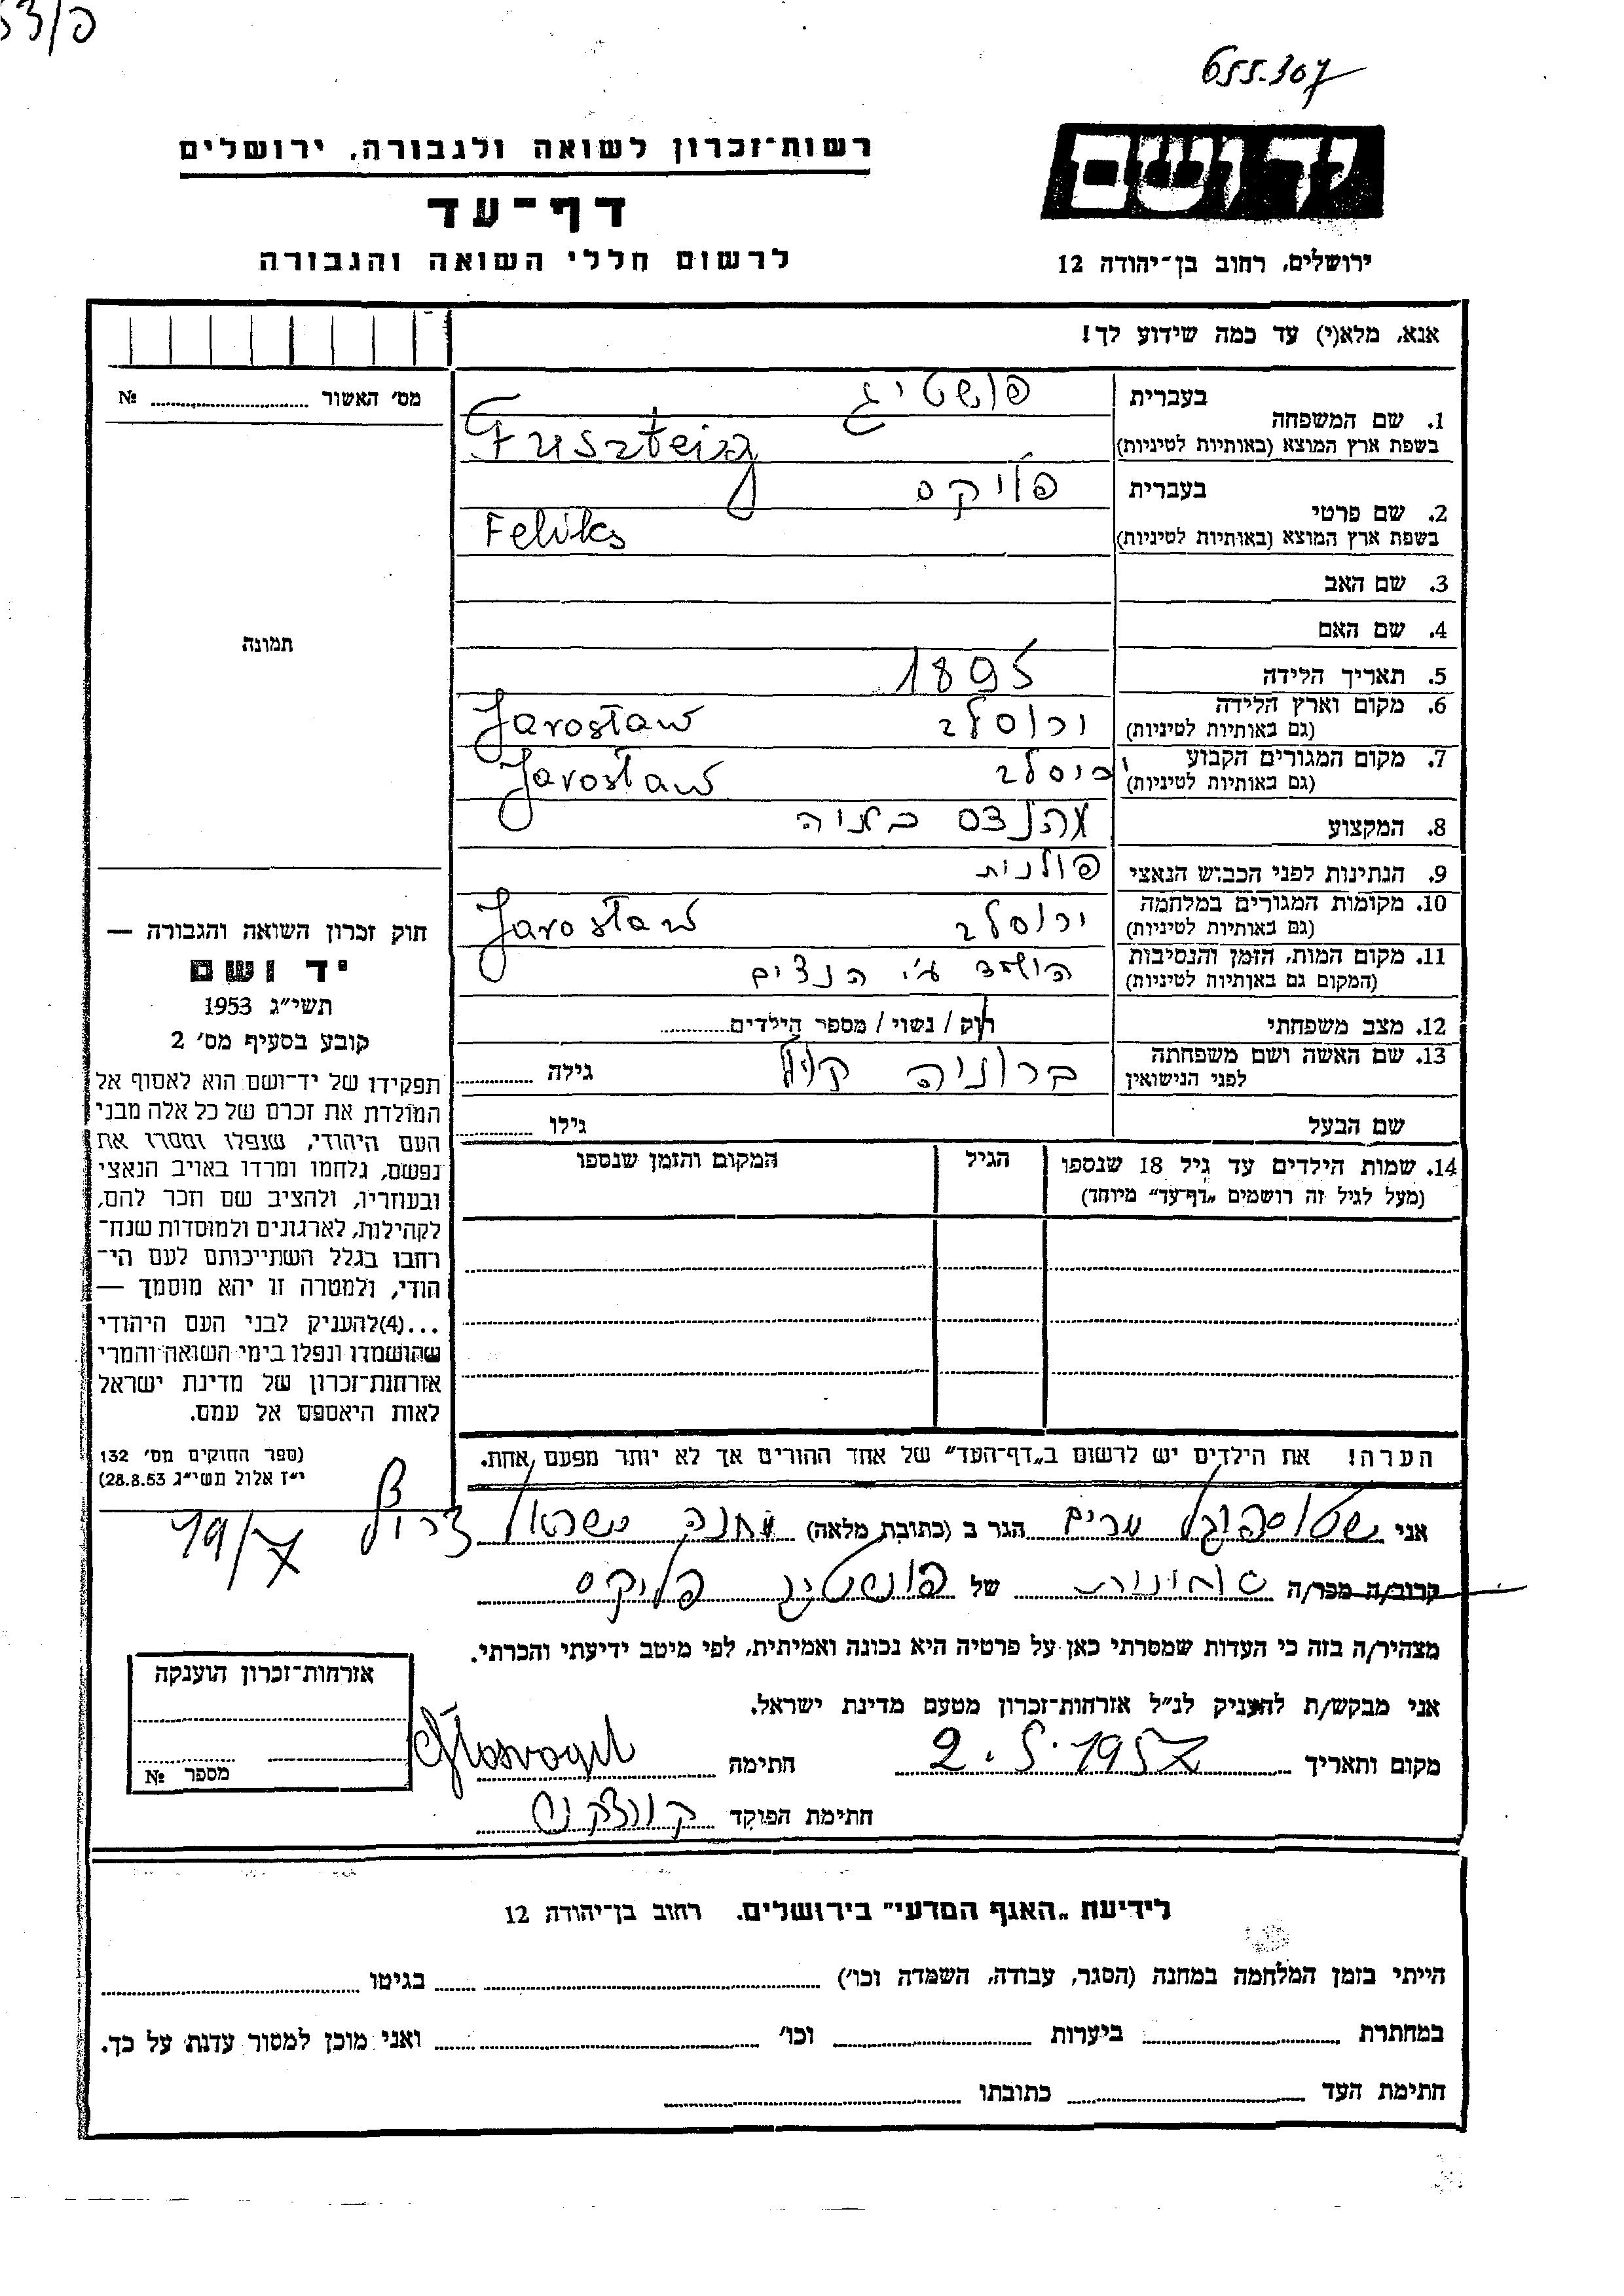 655.307
רשות־זכרון לשואה ולגבורה, ירושלים
יד ושם
דף־עד
לרשום חללי השואה והגבורה
ירושלים, רחוב בן־יהודה 12
אנא, מלא(י) עד כמה שידוע לך!
מס׳ האשור № ....................
1. שם המשפחה
בעברית פושטיג
בשפת ארץ המוצא (באותיות לטיניות) Fuszteig
2. שם פרטי
בעברית פליקס
בשפת ארץ המוצא (באותיות לטיניות) Feliks
3. שם האב
4. שם האם
תמונה
5. תאריך הלידה 1895
6. מקום וארץ הלידה ירוסלב Jarosław
(גם באותיות לטיניות)
7. מקום המגורים הקבוע ירוסלב Jarosław
(גם באותיות לטיניות)
8. המקצוע
9. הנתינות לפני הכבוש הנאצי פולנית
10. מקומות המגורים במלחמה ירוסלב Jarosław
(גם באותיות לטיניות)
11. מקום המות, הזמן והנסיבות הושמד ע״י הנצים
(המקום גם באותיות לטיניות)
12. מצב משפחתי רוק / נשוי / מספר הילדים
13. שם האשה ושם משפחתה ברוניה
לפני הנישואין
גילה
שם הבעל גילו
14. שמות הילדים עד גיל 18 שנספו
(מעל לגיל זה רושמים „דף־עד״ מיוחד)
הגיל
המקום והזמן שנספו
הערה! את הילדים יש לרשום ב„דף־העד״ של אחד ההורים אך לא יותר מפעם אחת.
חוק זכרון השואה והגבורה —
יד ושם
תשי״ג 1953
קובע בסעיף מס׳ 2
תפקידו של יד־ושם הוא לאסוף אל
המולדת את זכרם של כל אלה מבני
העם היהודי, שנפלו ומסרו את
נפשם, נלחמו ומרדו באויב הנאצי
ובעוזריו, ולהציב שם וזכר להם,
לקהילות, לארגונים ולמוסדות שנח־
רבו בגלל השתייכותם לעם הי־
הודי, ולמטרה זו יהא מוסמך —
...(4)להעניק לבני העם היהודי
שהושמדו ונפלו בימי השואה והמרי
אזרחות־זכרון של מדינת ישראל
לאות היאספם אל עמם.
(ספר החוקים מס׳ 132
י״ז אלול תשי״ג 28.8.53)
אני שטוספוגל מרים הגר ב (כתובת מלאה) מחנה ישראל
19/7
קרוב/ה מכר/ה של פושטיג פליקס
מצהיר/ה בזה כי העדות שמסרתי כאן על פרטיה היא נכונה ואמיתית, לפי מיטב ידיעתי והכרתי.
אני מבקש/ת להעניק לנ״ל אזרחות־זכרון מטעם מדינת ישראל.
מקום ותאריך 2.5.1957 חתימה
חתימת הפוקד
אזרחות־זכרון הוענקה
מספר №
לידיעת „האגף המדעי״ בירושלים, רחוב בן־יהודה 12
הייתי בזמן המלחמה במחנה (הסגר, עבודה, השמדה וכו׳) בגיטו
במחתרת ביערות וכו׳ ואני מוכן למסור עדות על כך.
חתימת העד כתובתו